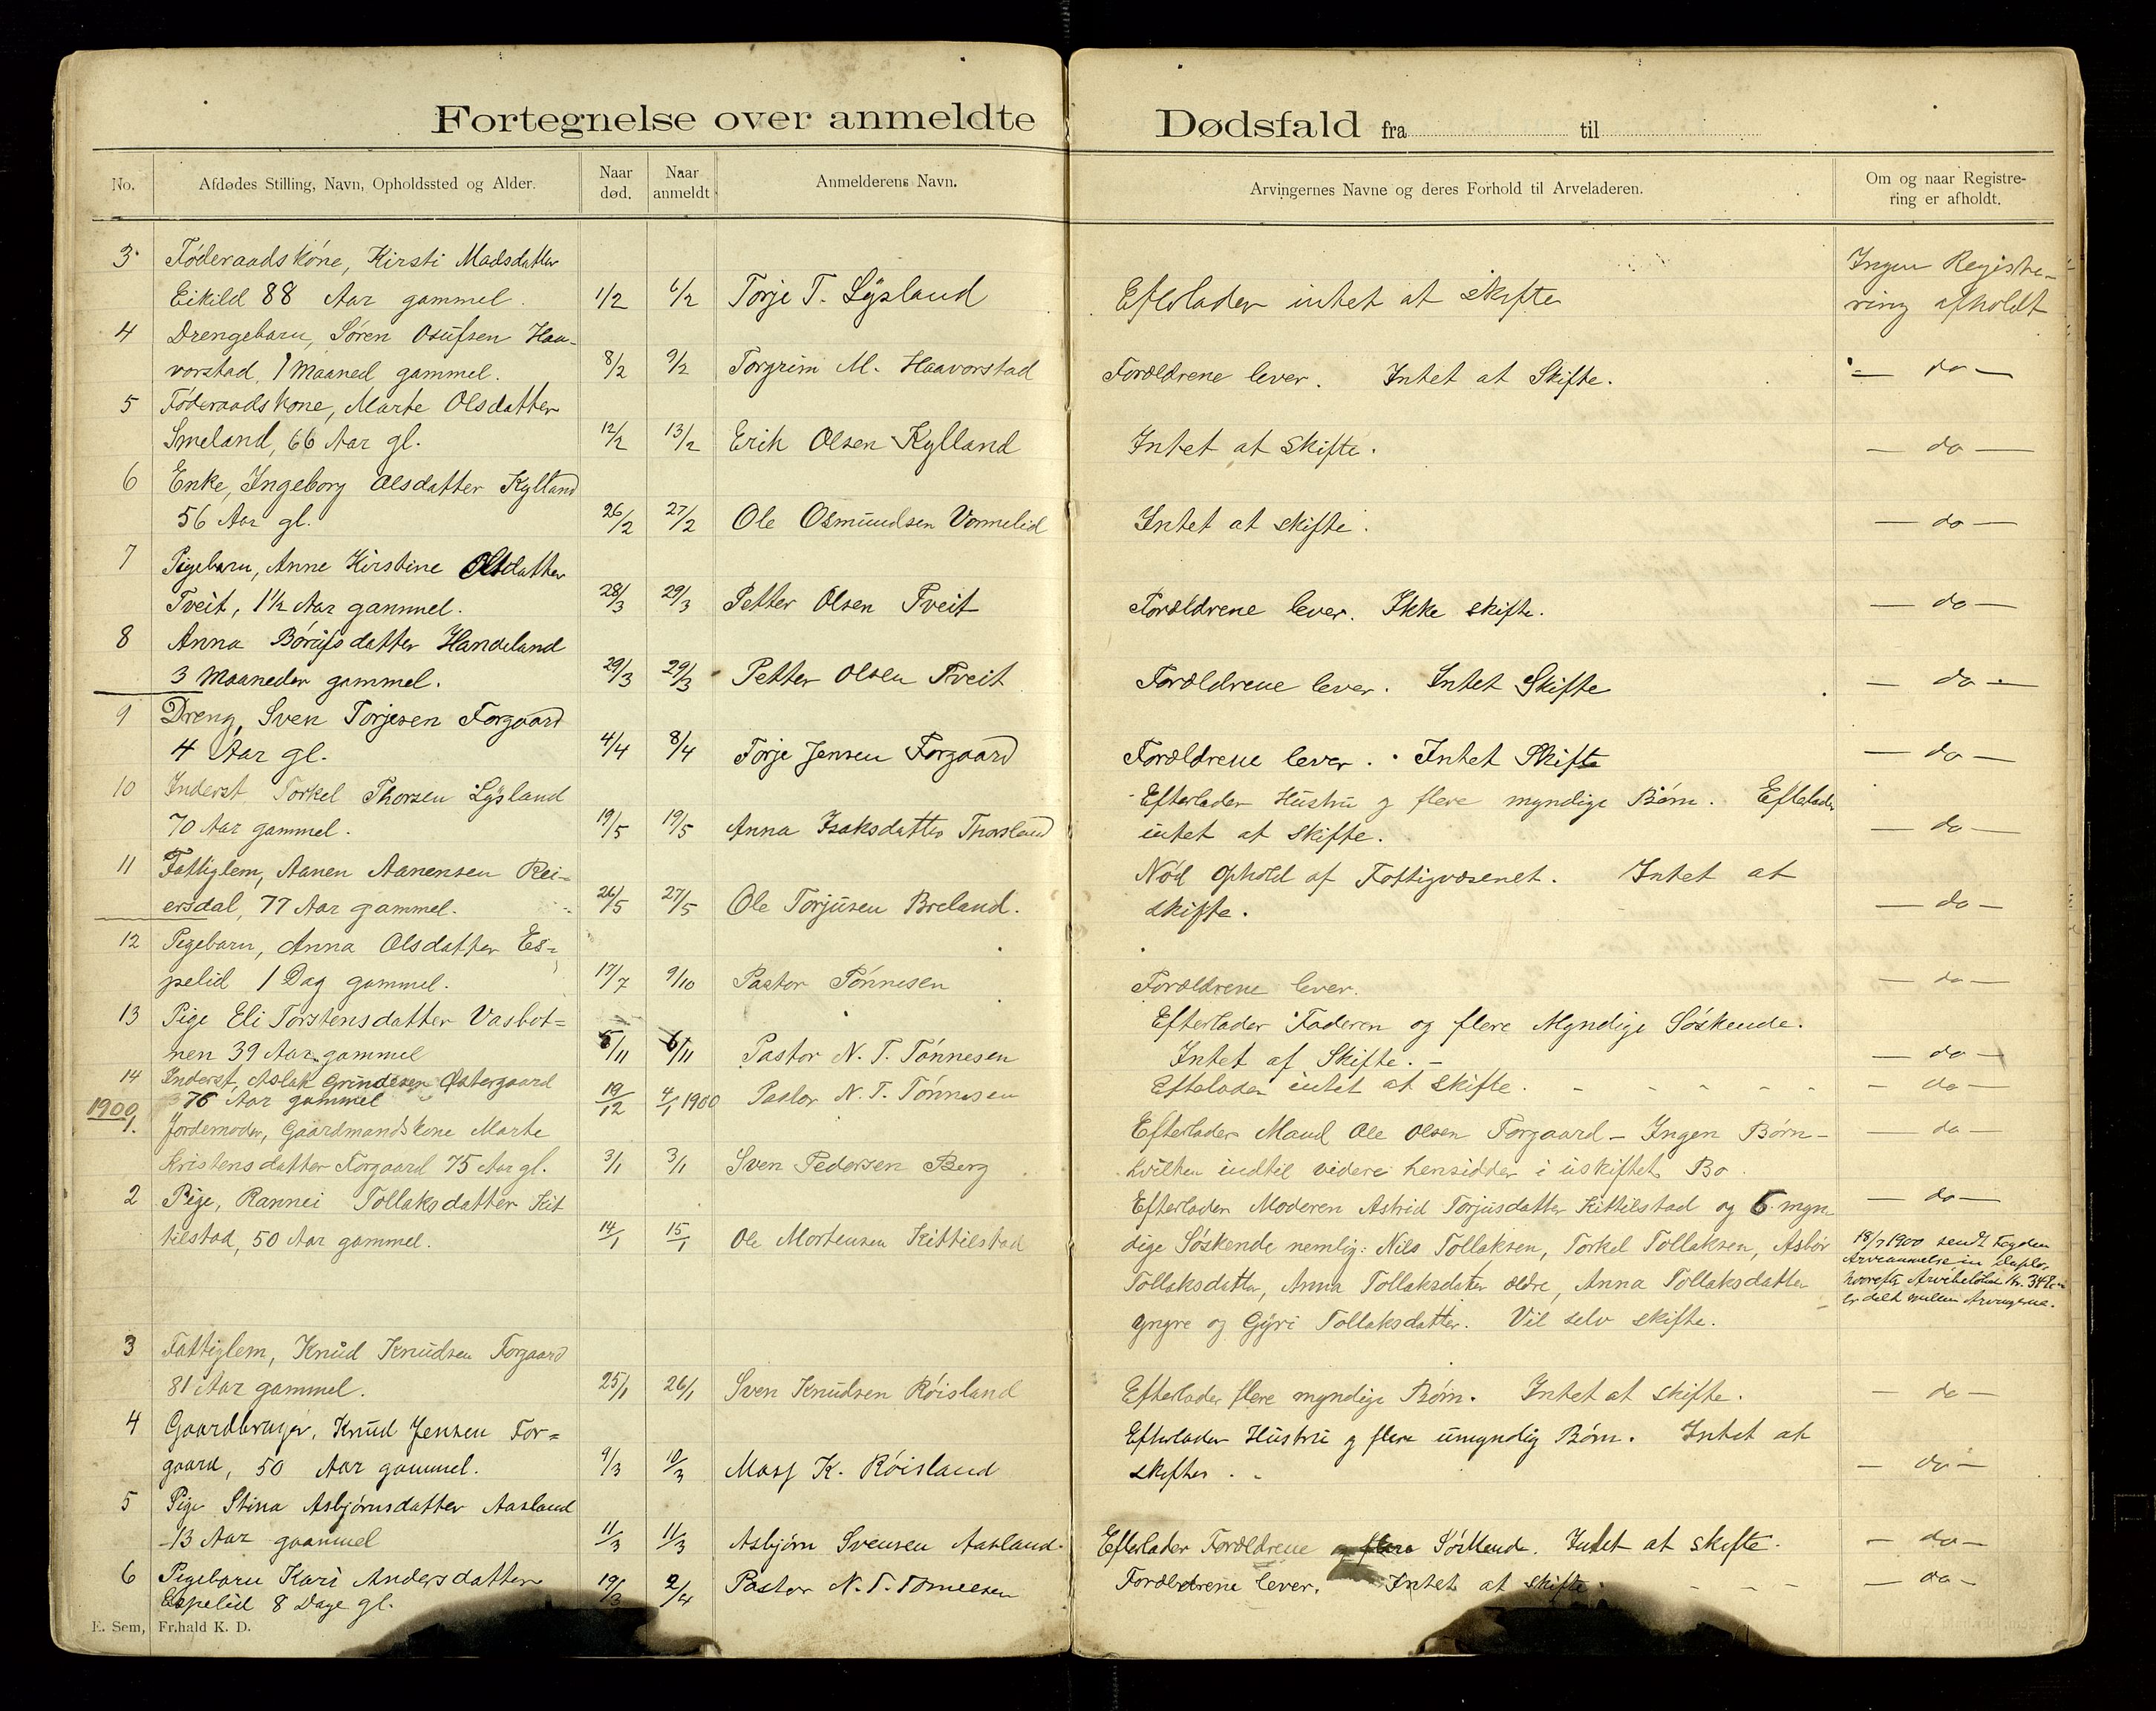 Fortegnelse over anmeldte Dødsfald fra til
No. Afdødes Stilling, Navn, Opholdssted og Alder. Naar død. Naar anmeldt. Anmelderens Navn. Arvingernes Navne og deres Forhold til Arveladeren. Om og naar Registrering er afholdt.
3 Føderaadskone, Kirsti Madsdatter Ingen Registre-
Eikild 88 Aar gammel. 1/2 6/2 Torje T. Lÿsland Efterlader intet at skifte ring afholdt
4 Drengebarn, Søren Osufsen Haa-
vorstad, 1 Maaned gammel. 8/2 9/2 Torgrim M. Haavorstad Forældrene lever. Intet at Skifte. — do —
5 Føderaadskone, Marte Olsdatter
Smeland, 66 Aar gl. 12/2 13/2 Erik Olsen Kylland Intet at skifte. — do —
6 Enke, Ingeborg Olsdatter Kylland
56 Aar gl. 26/2 27/2 Ole Osmundsen Vonnelid Intet at skifte. — do —
7 Pigebarn, Anne Kirstine Olsdatter
Tveit, 1½ Aar gammel. 28/3 29/3 Petter Olsen Tveit Forældrene lever. Ikke skifte. — do —
8 Anna Børufsdatter Handeland
3 Maaneder gammel. 29/3 29/3 Petter Olsen Tveit Forældrene lever. Intet Skifte — do —
9 Dreng, Sven Torjesen Forgaard
4 Aar gl. 4/4 8/4 Torje Jensen Forgaard Forældrene lever. Intet Skifte — do —
10 Inderst Torkel Thorsen Lÿsland Efterlader Hustru og flere myndige Børn. Efterlader
70 Aar gammel. 19/5 19/5 Anna Isaksdatter Thorsland intet at skifte. — do —
11 Fattiglem, Aanen Aanensen Rei- Nød Ophold af Fattigvæsenet. Intet at
ersdal, 77 Aar gammel. 26/5 27/5 Ole Torjusen Breland. skifte. — do —
12 Pigebarn, Anna Olsdatter Es-
pelid 1 Dag gammel. 17/7 9/10 Pastor Tønnesen Forældrene lever. — do —
13 Pige Eli Torstensdatter Vasbot= Efterlader Faderen og flere Myndige Søskende.
nen 39 Aar gammel 5/11 6/11 Pastor N. T. Tønnesen Intet af Skifte. — — do —
14 Inderst, Aslak Grundesen Østergaard Efterlader intet at skifte. — do —
76 Aar gammel 19/12 4/1 1900 Pastor N. T. Tønnesen
1900
1. Jordemoder, Gaardmandskone Marte Efterlader Mand Ole Olsen Forgaard — Ingen Børn — — do —
Kristensdatter Forgaard 75 Aar gl. 3/1 3/1 Sven Pedersen Berg hvilken indtil videre hensidder i uskiftet Bo.
2 Pige, Rannei Tollaksdatter Kit Efterlader Moderen Astrid Torjusdatter Kittilstad og 6 myn — do —
tilstad, 50 Aar gammel. 14/1 15/1 Ole Mortensen Kittilstad dige Søskende nemlig: Nils Tollaksen, Torkel Tollaksen, Asbør 18/7 1900 sendt Fogden
Tollaksdatter, Anna Tollaksdater ældre, Anna Tollaksdatter Arveanmeldelse in duplo,
yngre og Gÿri Tollaksdatter. Vil selv skifte. hvorefter Arvebeløbet Kr. 342 er delt mellem Arvingerne.
3 Fattiglem, Knud Knudsen Forgaard
81 Aar gammel. 25/1 26/1 Sven Knudsen Røisland Efterlader flere myndige Børn. Intet at skifte. do —
4 Gaardbruger, Knud Jensen For= Efterlader Hustru og flere umyndig Børn. Intet at
gaard, 50 Aar gammel. 9/3 10/3 K. Røisland skiftes. — do —
5 Pige Stina Asbjørnsdatter Aasland
13 Aar gaammel 11/3 11/3 Asbjørn Svensen Aasland. Efterlader Forældrene og flere Søskend. Intet at skifte. — do —
6 Pigebarn Kari Andersdatter 19/3 2/4 Pastor N. T. Tønnesen Forældrene lever. Intet at skifte. — do —
Espelid 8 Dage gl.
E. Sem, Fr.hald K. D.